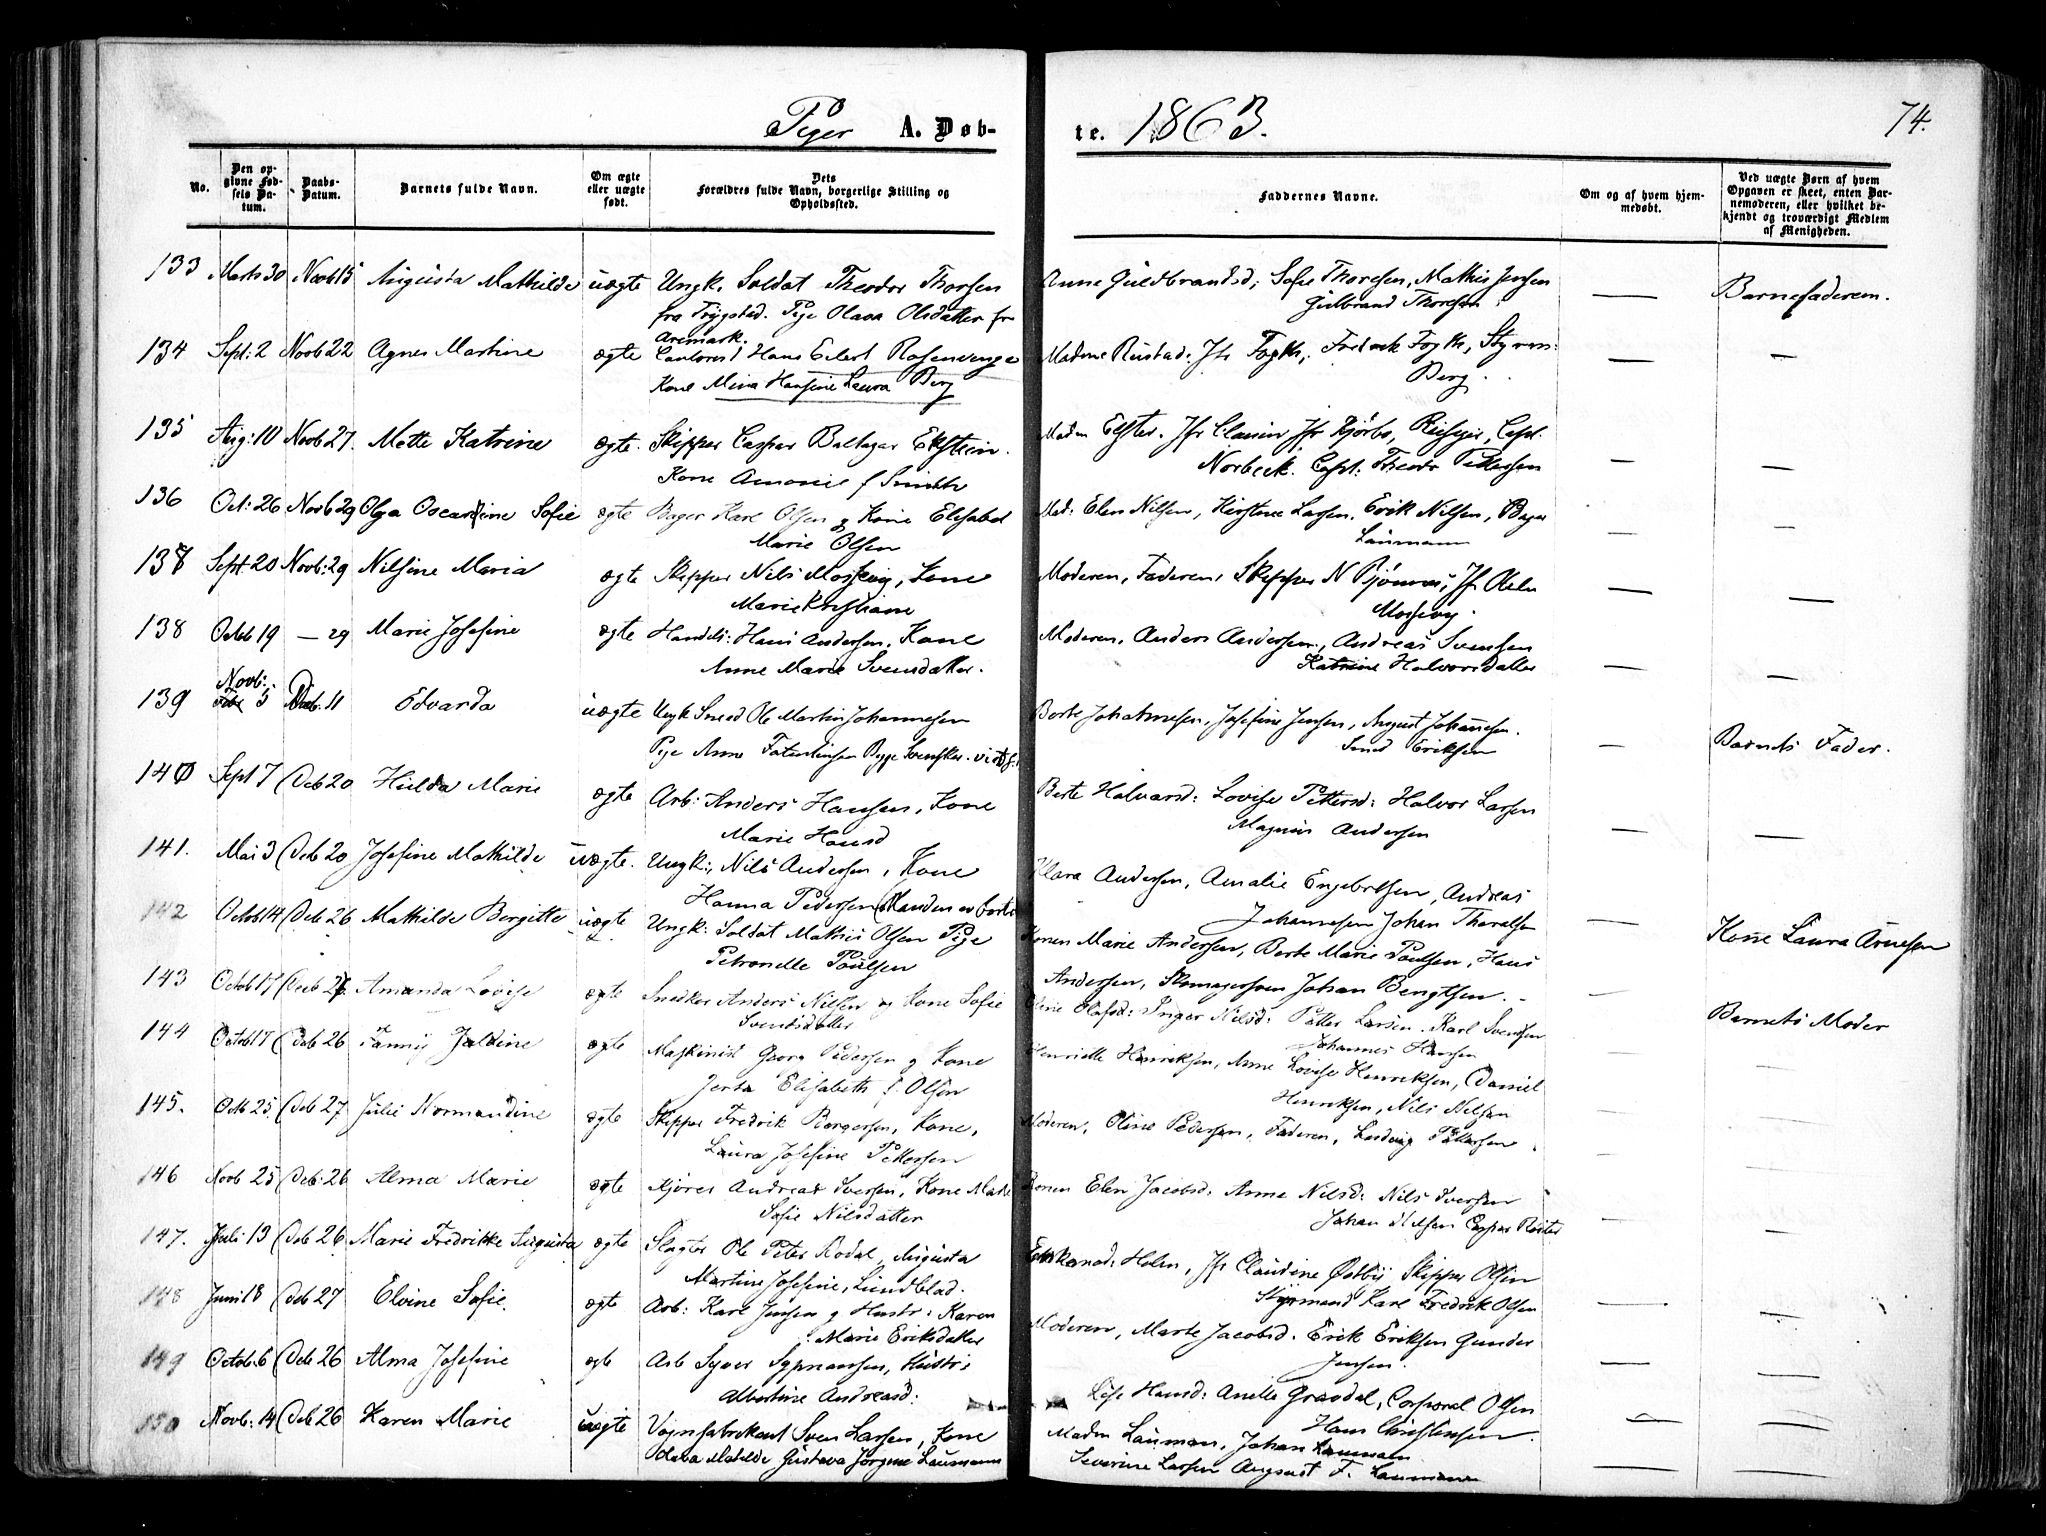 Piger A. Døb-
te. 1863.
74.
No.
Den opgivne Fødsels Datum.
Daabs-Datum.
Barnets fulde Navn.
Om ægte eller uægte født.
Dets Forældres fulde Navn, borgerlige Stilling og Opholdssted.
Faddernes Navne.
Om og af hvem hjemmedøbt.
Ved uægte Børn af hvem Opgaven er skeet, enten Barnemoderen, eller hvilket bekjendt og troværdigt Medlem af Menigheden.
133 Marts 30 Novb 15 Augusta Mathilde uægte Ungk. Soldat Theodor Thorsen
fra Trygstad. Pige Olava Olsdatter fr
Aremark.
Anne Guldbrandsd, Sofie Thoresen, Mathis Jensen
Gulbrand Thoresen
— Barnefaderen.
134 Sept: 2 Novb 22 Agnes Martine ægte Cantorist Hans Eilert Rosenvinge
Kone Mina Hansine Laura Berg
Madame Rustad. Jfr Fogth, Fredrek Fogth, Styrm:
Berg.
— —
135 Aug: 10 Novb 27. Mette Katrine ægte. Skipper Caspar Baltazar Ekstein.
Kone Amonie f Smith
Madm Elster. Jfr Clasin Jfr Kjørbo, Capt.
Norbeck. Capt. Theodr Pettersen
— —
136 Oct: 26 Novb 29 Olga Oscardine Sofie ægte Bager Karl Olsen og Kone Elisabet
Marie Olsen
Mad: Elen Nilsen, Kirstine Larsen. Erik Nilsen, Bager
Laumann
— —
137 Sept. 20 Novb: 29 Nilsine Maria ægte Skipper Nils Mossevig, Kone
Marie Kristiane
Moderen, Faderen, Skipper N Bjønnes, Jfr Olele
Mossevig.
— —
138 Octb 19 — 29 Marie Josefine ægte Handels: Hans Andersen. Kone
Anne Marie Svensdatter.
Moderen. Anders Andersen, Andreas Svensen
Katrine Halvorsdatter
— —
139 Novb: 5 Deb. 11 Edvarda uægte Ungk Smed Ole Martin Johannesen
Pige Anne
Berte Johannesen, Josefine Jensen, August Johannesen.
Smed Eriksen
— Barnets Fader.
140 Sept 7 Deb 20 Hulda Marie ægte Arb: Anders Hansen, Kone
Marie Hansd
Berte Halvarsd: Lovise Pettersd: Halvor Larsen
Magnus Andersen
— —
141. Mai 3 Deb 20 Josefine Mathilde uægte. Ungk:, Nils Andersen, Kone
Hanna Pedersen (Manden er borte
Klara Andersen, Amalie Engebretsen, Andreas
Johannesen Johan Thoralfsen
— Kone Laura Arnesen
142 Octob 14 Deb 26 Mathilde Bergitte uægte Ungk: Soldat Mathis Olsen Pige
Petronelle Poulsen
Konen Marie Andersen, Berte Marie Poulsen, Hans
Andersen, Skomagersven Johan Bengtsen.
— Barnets Moder
143 Octob 17 Deb 26 Amanda Lovise ægte Snedker Anders Nilsen og Kone Sofie
Svendsdatter
Oline Olafsd: Inger Nilsd: Petter Larsen. Karl Svendsen
Johannes Hansen
— —
144 Octob 17 Deb 26 Fanny Jaldine ægte Maskinist Georg Pedersen og Kone
Elisabeth f: Olsen
Henriette Henriksen, Anne Lovise Henriksen, Daniel
Henriksen, Nils Nilsen
— —
145. Octb 25 Deb 27 Julie Normandine ægte Skipper Fredrik Borgersen, Kone,
Laura Josefine Pettersen
Moderen, Oline Pedersen, Faderen, Ludvig Pettersen
— —
146 Novb 25 Deb: 26 Alma Marie ægte Kjører Andreas Iversen, Kone Marte
Sofie Nilsdatter
Konen Elen Jacobsd: Anna Nilsd: Nils Iversen
Johan Nilsen Caspar Reuter
— —
147. Juli 13 Deb 26 Marie Fredrikke Augusta ægte Slagter Ole Peter Rodal, Augusta
Martine Josefine, Lundblad.
Enkemad: Holm, Jfr Claudine Østby Skipper Olsen
Styrmand Karl Fredrik Olsen
— —
148 Juni 18 Deb 27 Elvine Sofie. ægte Arb: Karl Jensen og Hustr: Karen
Marie Eriksdatter
Moderen, Marte Jacobsd. Erik Eriksen Gunder
Jensen.
— —
149 Octob 6 Deb 26 Alma Josefine ægte Arb Syver Hustr:
Albertine Andreasd:
Hansd: Anette Gravdal, Corporal Olsen
Hans Christensen.
— —
150 Novb: 14 Deb 26 Karen Marie uægte Vognfabrikant Sven Larsen, Kone
Olava Matilde Gustava Jørgine Laumann
Madm Lauman, Johan Lauman
Severine Larsen August F. Laumann
— —